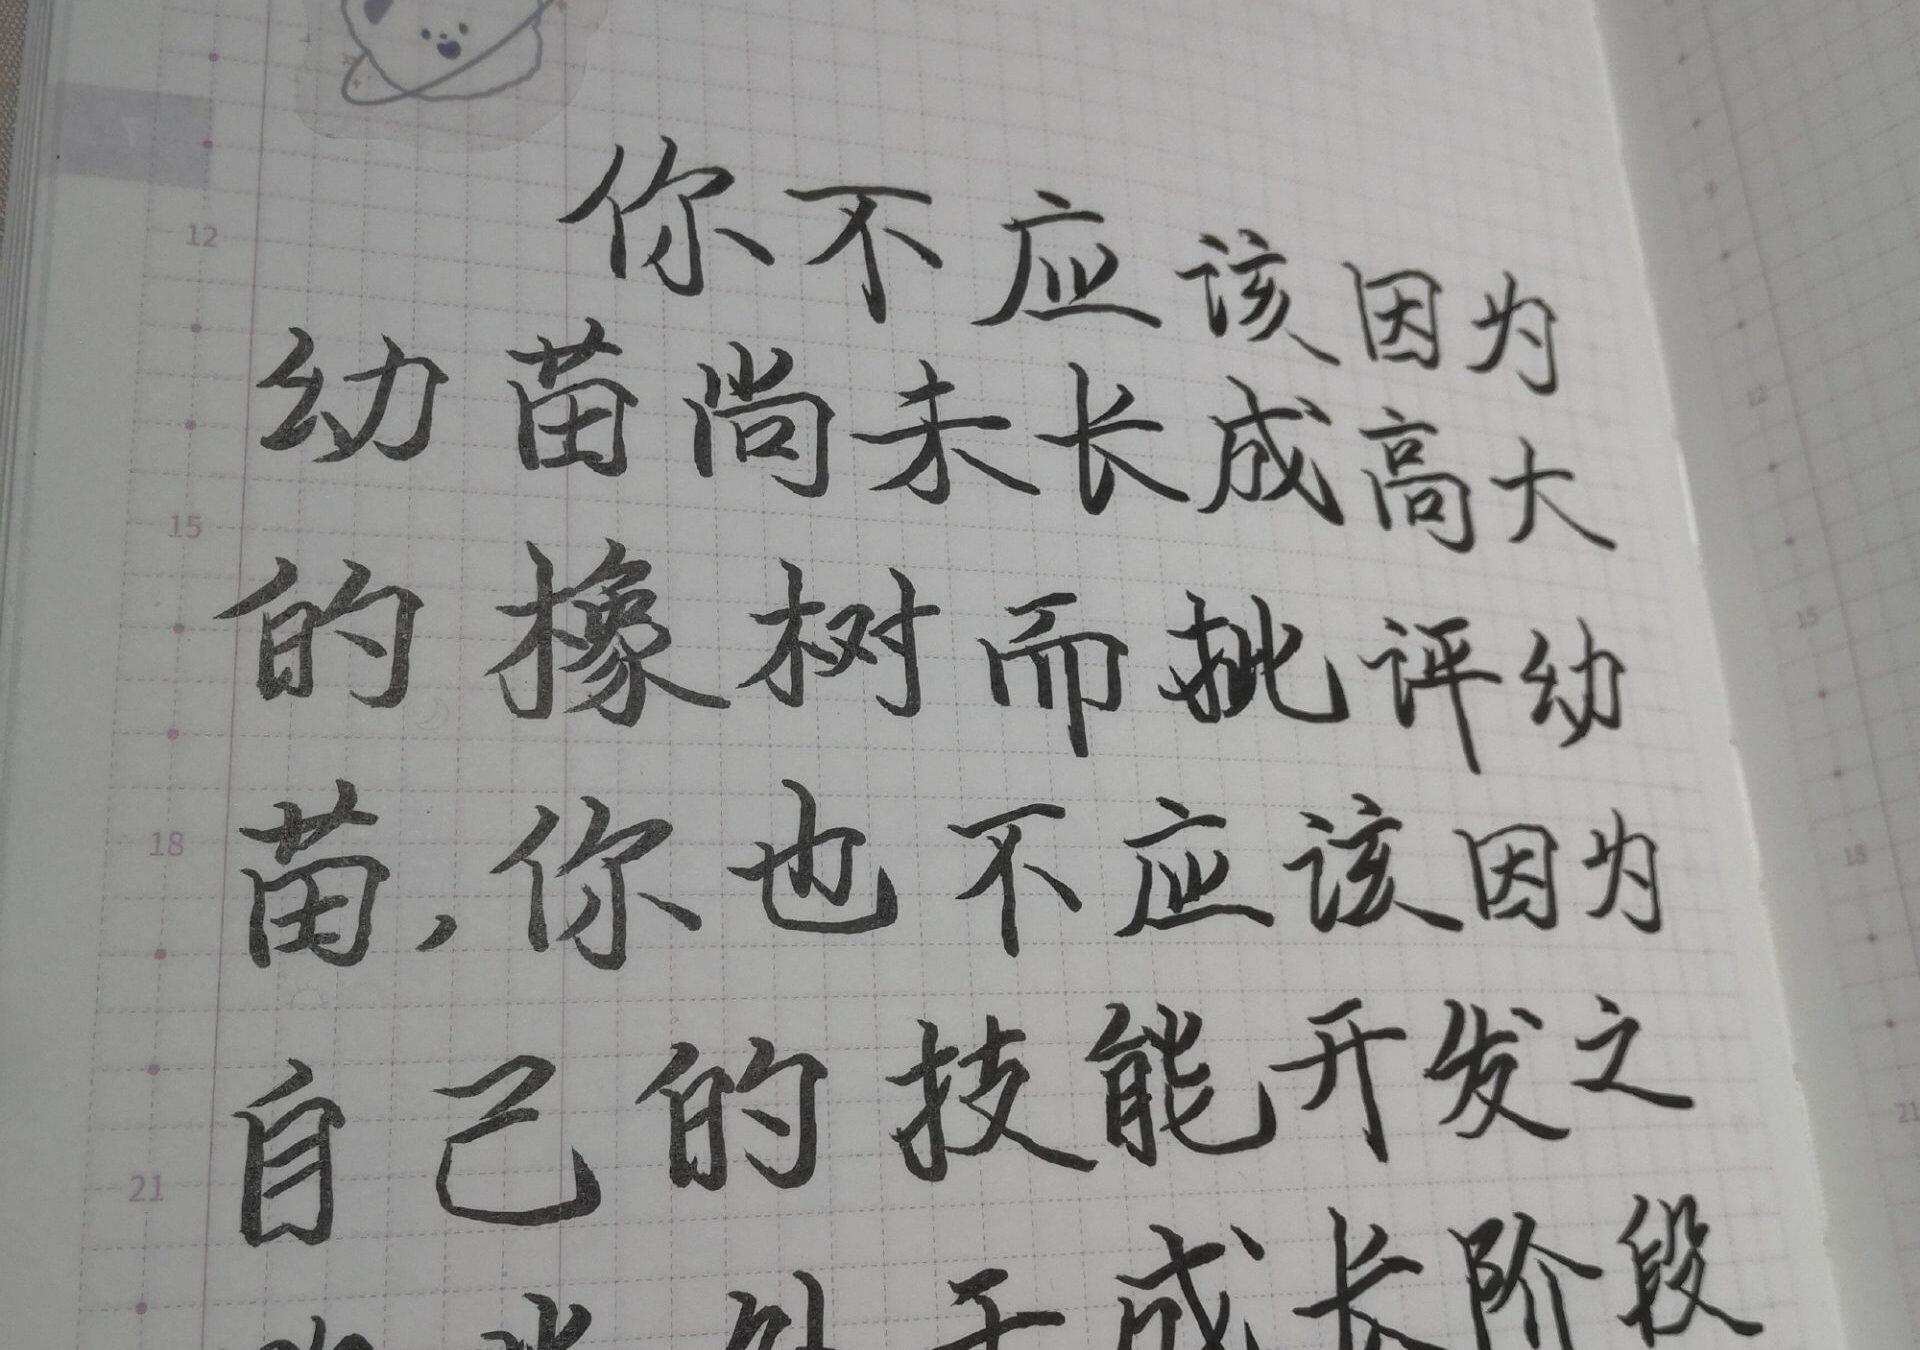 12
15
18
21
你不应该因为
幼苗尚未长成高大
的橡树而批评幼
苗,你也不应该因为
自己的技能开发之
处于成长阶段
12
15
18
21